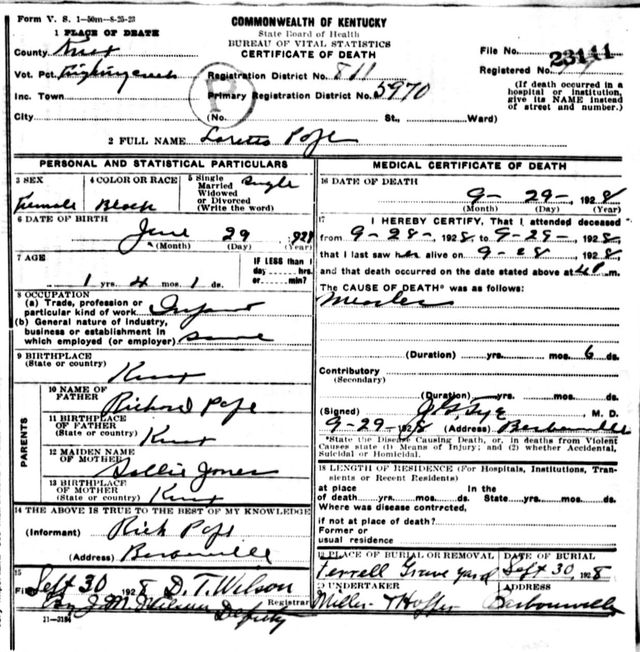 Form V. S. 1-50m-8-25-23
1 PLACE OF DEATH
COMMONWEALTH OF KENTUCKY
State Board of Health
BUREAU OF VITAL STATISTICS
CERTIFICATE OF DEATH
County Knox
File No. 23141
Vot. Pct.
Registration District No. 811
Registered No.
Inc. Town
Primary Registration District No. 5970
P
(If death occurred in a hospital or institution, give its NAME instead of street and number.)
City
(No.
St.,
Ward)
2 FULL NAME Loretta Pope
PERSONAL AND STATISTICAL PARTICULARS
3 SEX
Female
4 COLOR OR RACE
Black
5 Single
Married
Widowed
or Divorced
(Write the word)
Single
6 DATE OF BIRTH
June 29
(Month) (Day) (Year)
7 AGE
1 yrs. 4 mos. 1 ds.
IF LESS than 1
day hrs.
or min.?
8 OCCUPATION
(a) Trade, profession or
particular kind of work Infant
(b) General nature of industry,
business or establishment in
which employed (or employer) same
9 BIRTHPLACE
(State or country)
Knox
PARENTS
10 NAME OF
FATHER
Richard Pope
11 BIRTHPLACE
OF FATHER
(State or country)
Knox
12 MAIDEN NAME
OF MOTHER
Sallie Jones
13 BIRTHPLACE
OF MOTHER
(State or country)
Knox
14 THE ABOVE IS TRUE TO THE BEST OF MY KNOWLEDGE
(Informant) Rich Pope
(Address)
15
Filed Sept 30 1928 D. T. Wilson
Registrar
By J. M. Wilson Deputy
11-3184
MEDICAL CERTIFICATE OF DEATH
16 DATE OF DEATH
9 - 29 - 1928
(Month) (Day) (Year)
17
I HEREBY CERTIFY, That I attended deceased
from 9-28-, 1928, to 9-29-, 1928,
that I last saw her alive on 9-28, 1928
and that death occurred on the date stated above at m.
The CAUSE OF DEATH* was as follows:
Measles
(Duration) yrs. mos. 6 ds.
Contributory
(Secondary)
(Duration) yrs. mos. ds.
(Signed) M. D.
9-29-1928 (Address) Barbourville
*State the Disease Causing Death, or, in deaths from Violent
Causes state (1) Means of Injury; and (2) whether Accidental,
Suicidal or Homicidal.
18 LENGTH OF RESIDENCE (For Hospitals, Institutions, Transients or Recent Residents)
at place
of death yrs. mos. ds.
In the
State yrs. mos. ds.
Where was disease contracted,
if not at place of death?
Former or
usual residence
19 PLACE OF BURIAL OR REMOVAL
Terrell Grave yard
DATE OF BURIAL
Sept 30, 1928
20 UNDERTAKER
Miller &
ADDRESS
Barbourville